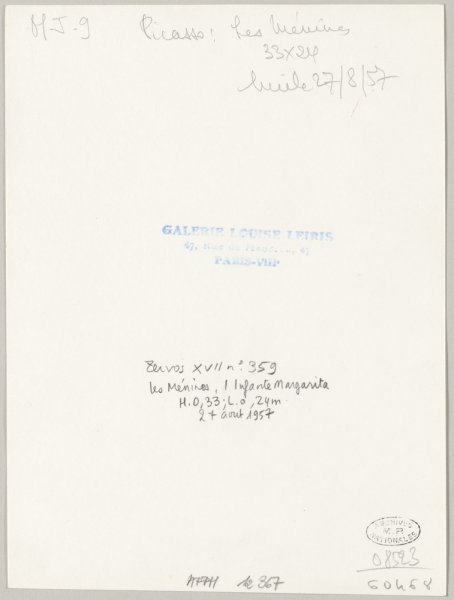 MJ-9 Picasso: Les Ménines
33x24
huile 27/8/57
GALERIE LOUISE LEIRIS
47, Rue de 47
PARIS-VIIIe
Zervos XVII n° 359
les Ménines, l'Infante Margarita
H.0,33; L.0,24m
27 août 1957
ARCHIVES
NATIONALES
08523
60468
367